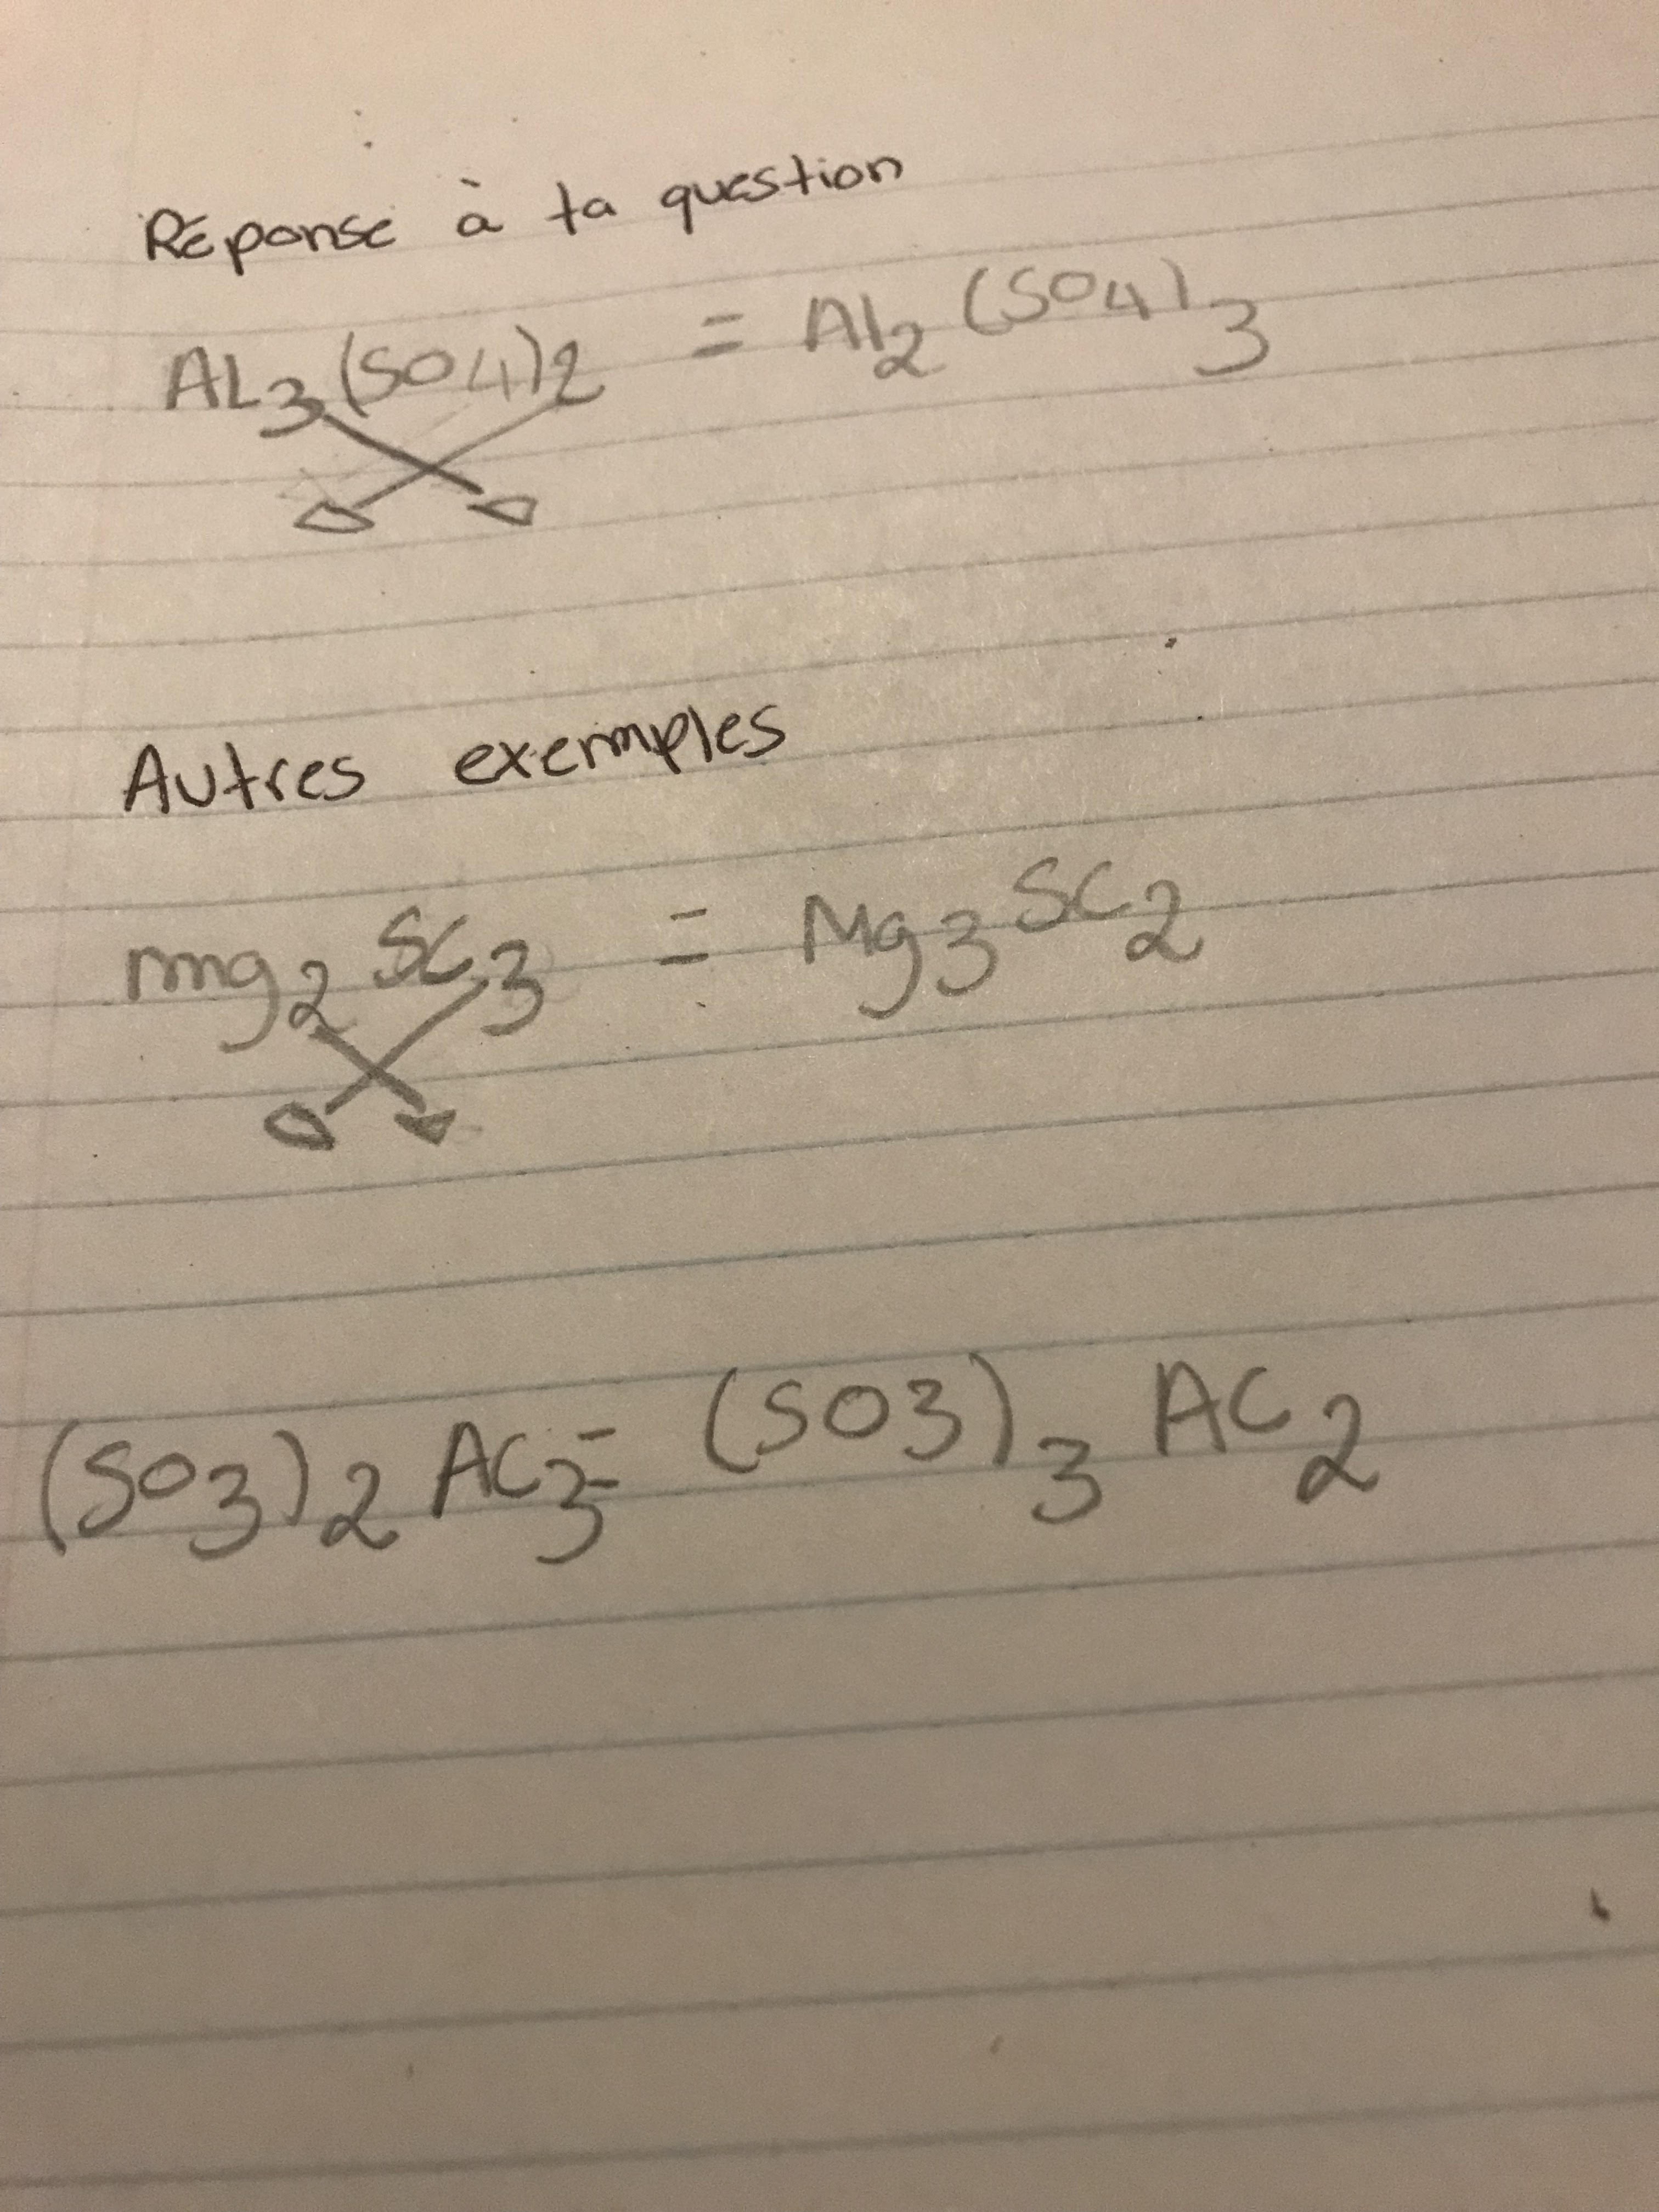 Réponse à ta question
AL₃(SO4)₂ = Al₂(SO4)₃
Autres exemples
mg₂ Sc₃ = Mg₃Sc₂
(SO₃)₂ AC₃ = (SO3)₃ AC₂